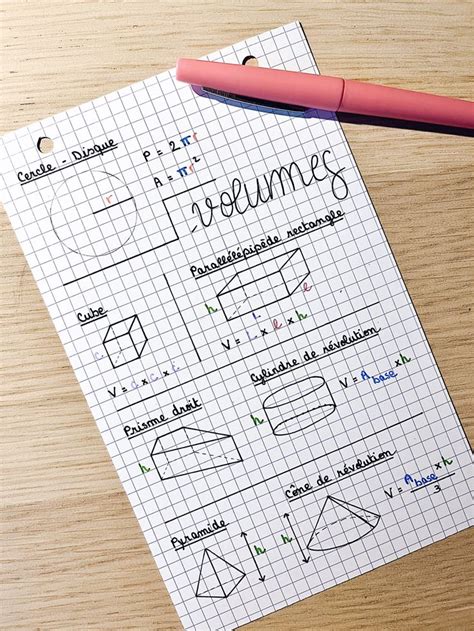 Cercle - Disque
r
P = 2πr
A = πr²
volumes
Parallélépipède rectangle
h
L
l
V = L x l x h
Cube
c
V = c x c x c
Cylindre de révolution
h
V = A base x h
Prisme droit
h
Cône de révolution
h
V = A base x h
3
Pyramide
h